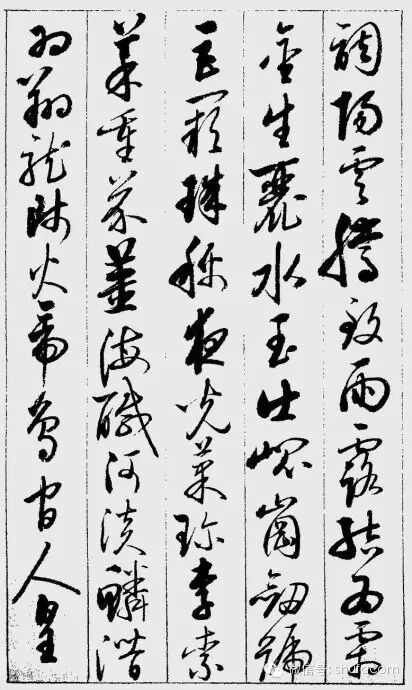 調陽雲騰致雨露結為霜
金生麗水玉出崐崗劍號
巨闕珠稱夜光菓珍李柰
菜重芥薑海鹹河淡鱗潛
羽翔龍師火帝鳥官人皇
微信号: